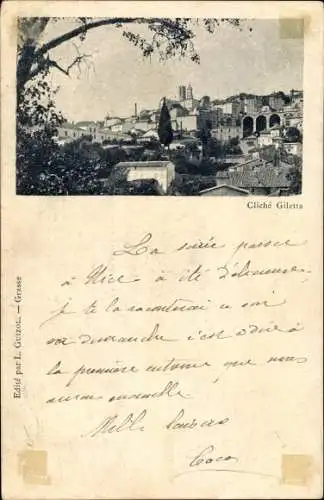 Cliché Giletta
Edité par L. Guizol. — Grasse
La soirée passée
à Nice à été délicieuse
je te la raconterai ce soir
ou dimanche c'est à dire à
la première entrevue que nous
aurons ensemble
Mille baisers
Coco